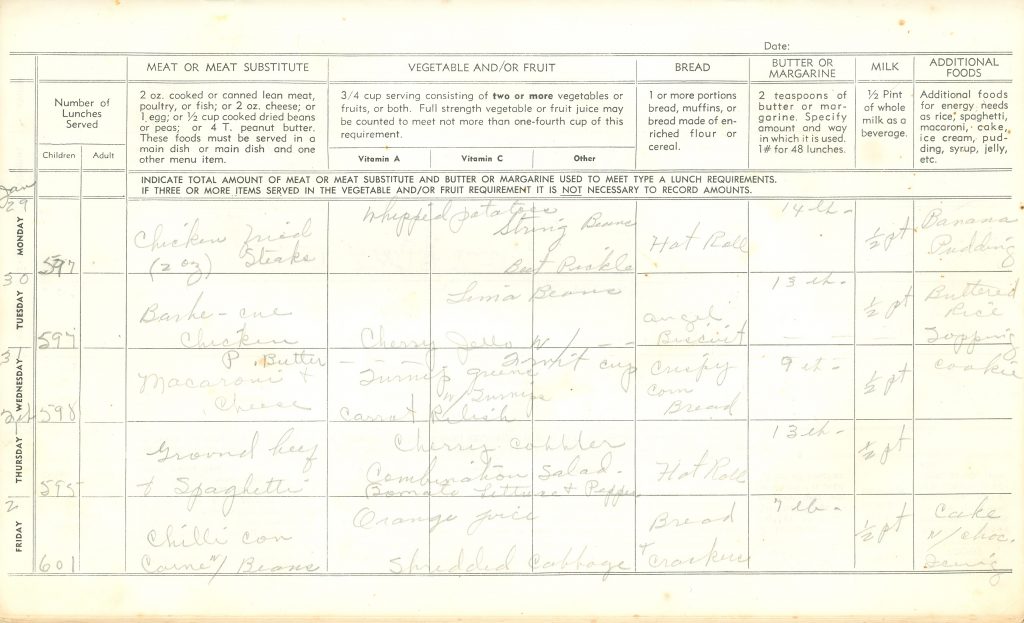 Date:
MEAT OR MEAT SUBSTITUTE
VEGETABLE AND/OR FRUIT
BREAD
BUTTER OR MARGARINE
MILK
ADDITIONAL FOODS
Number of
Lunches
Served
Children
Adult
2 oz. cooked or canned lean meat,
poultry, or fish; or 2 oz. cheese; or
1 egg; or ½ cup cooked dried beans
or peas; or 4 T. peanut butter.
These foods must be served in a
main dish or main dish and one
other menu item.
3/4 cup serving consisting of two or more vegetables or
fruits, or both. Full strength vegetable or fruit juice may
be counted to meet not more than one-fourth cup of this
requirement.
Vitamin A
Vitamin C
Other
1 or more portions
bread, muffins, or
bread made of en-
riched flour or
cereal.
2 teaspoons of
butter or mar-
garine. Specify
amount and way
in which it is used.
1# for 48 lunches.
½ Pint
of whole
milk as a
beverage.
Additional foods
for energy needs
as rice, spaghetti,
macaroni, cake,
ice cream, pud-
ding, syrup, jelly,
etc.
INDICATE TOTAL AMOUNT OF MEAT OR MEAT SUBSTITUTE AND BUTTER OR MARGARINE USED TO MEET TYPE A LUNCH REQUIREMENTS.
IF THREE OR MORE ITEMS SERVED IN THE VEGETABLE AND/OR FRUIT REQUIREMENT IT IS NOT NECESSARY TO RECORD AMOUNTS.
Jan
29
MONDAY
597
Chicken fried
(2 oz) Steaks
Whipped potatoes
String Beans
Beet Pickle
Hot Roll
14 lb-
½ pt
Banana
Pudding
30
TUESDAY
597
Barbe-cue
Chicken
Lima Beans
Cherry Jello w/ --
--- Fruit cup
Angel
Biscuit
13 lb-
½ pt
Buttered
Rice
Topping
31
WEDNESDAY
598
P. Butter
Macaroni +
Cheese
Turnip greens
w/ Turnips
Carrot Relish
Crispy
Corn
Bread
9 lb-
½ pt
Cookie
THURSDAY
595
Ground beef
+ Spaghetti
Cherry Cobbler
Combination Salad-
Lettuce + Pepper
Hot Roll
13 lb-
½ pt
2
FRIDAY
601
Chilli con
Carne w/ Beans
Orange juice
Shredded Cabbage
Bread
+ Crackers
7 lb-
½ pt
Cake
w/ choc.